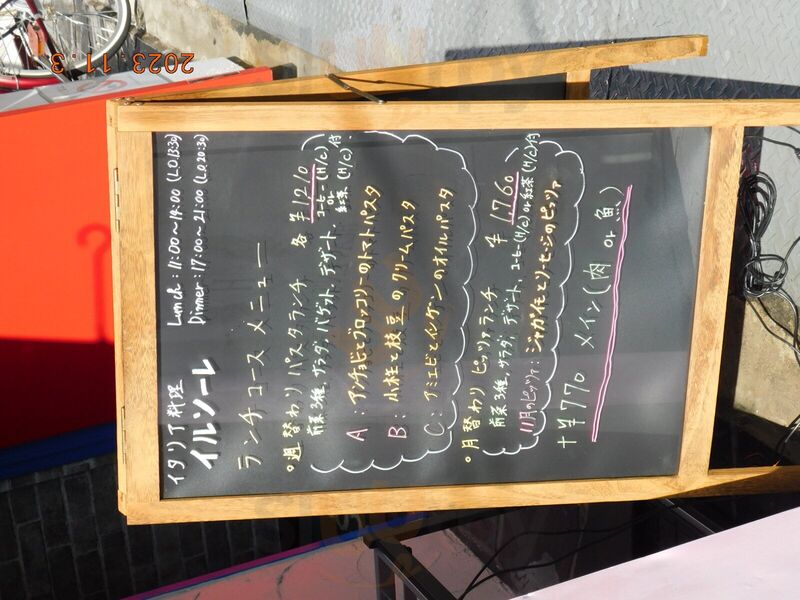 イタリア料理
イルソーレ
Lunch : 11:00〜14:00 (L.O.13:30)
Dinner : 17:00〜21:00 (L.O.20:30)
ランチコース メニュー
○週替わり パスタランチ 各 ¥1,210
前菜3種、サラダ、バゲット、デザート、コーヒー(H/C) or 紅茶(H/C)付
A : アンチョビとブロッコリーのトマトパスタ
B : 小柱と枝豆のクリームパスタ
C : アミエビとインゲンのオイルパスタ
○月替わり ピッツァランチ ¥1,760
前菜3種、サラダ、デザート、コーヒー(H/C) or 紅茶(H/C)付
11月のピッツァ : ジャガイモとソーセージのピッツァ
+¥770 メイン(肉 or 魚)
2023.11.3